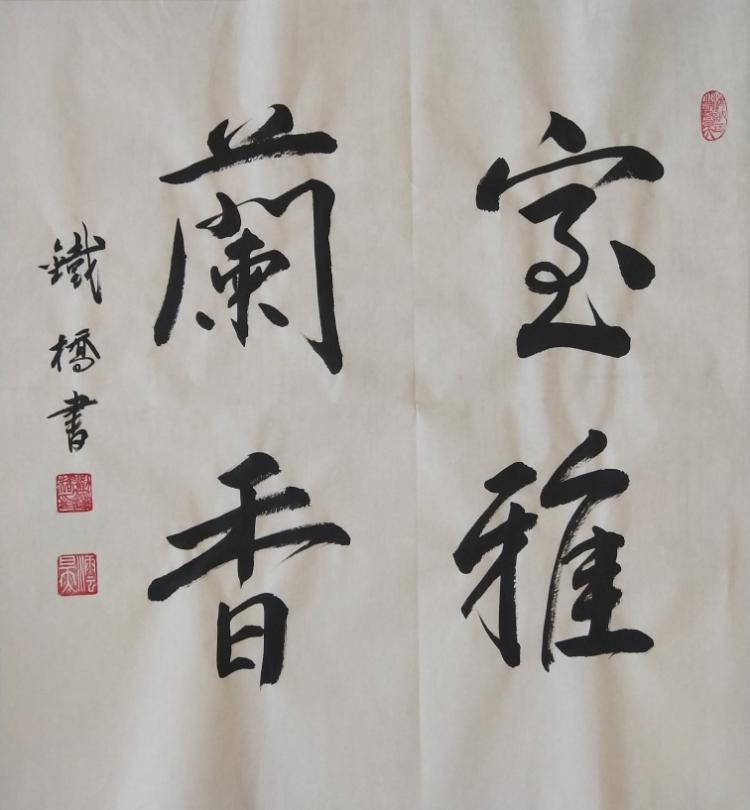 室雅
蘭香
鐵橋書